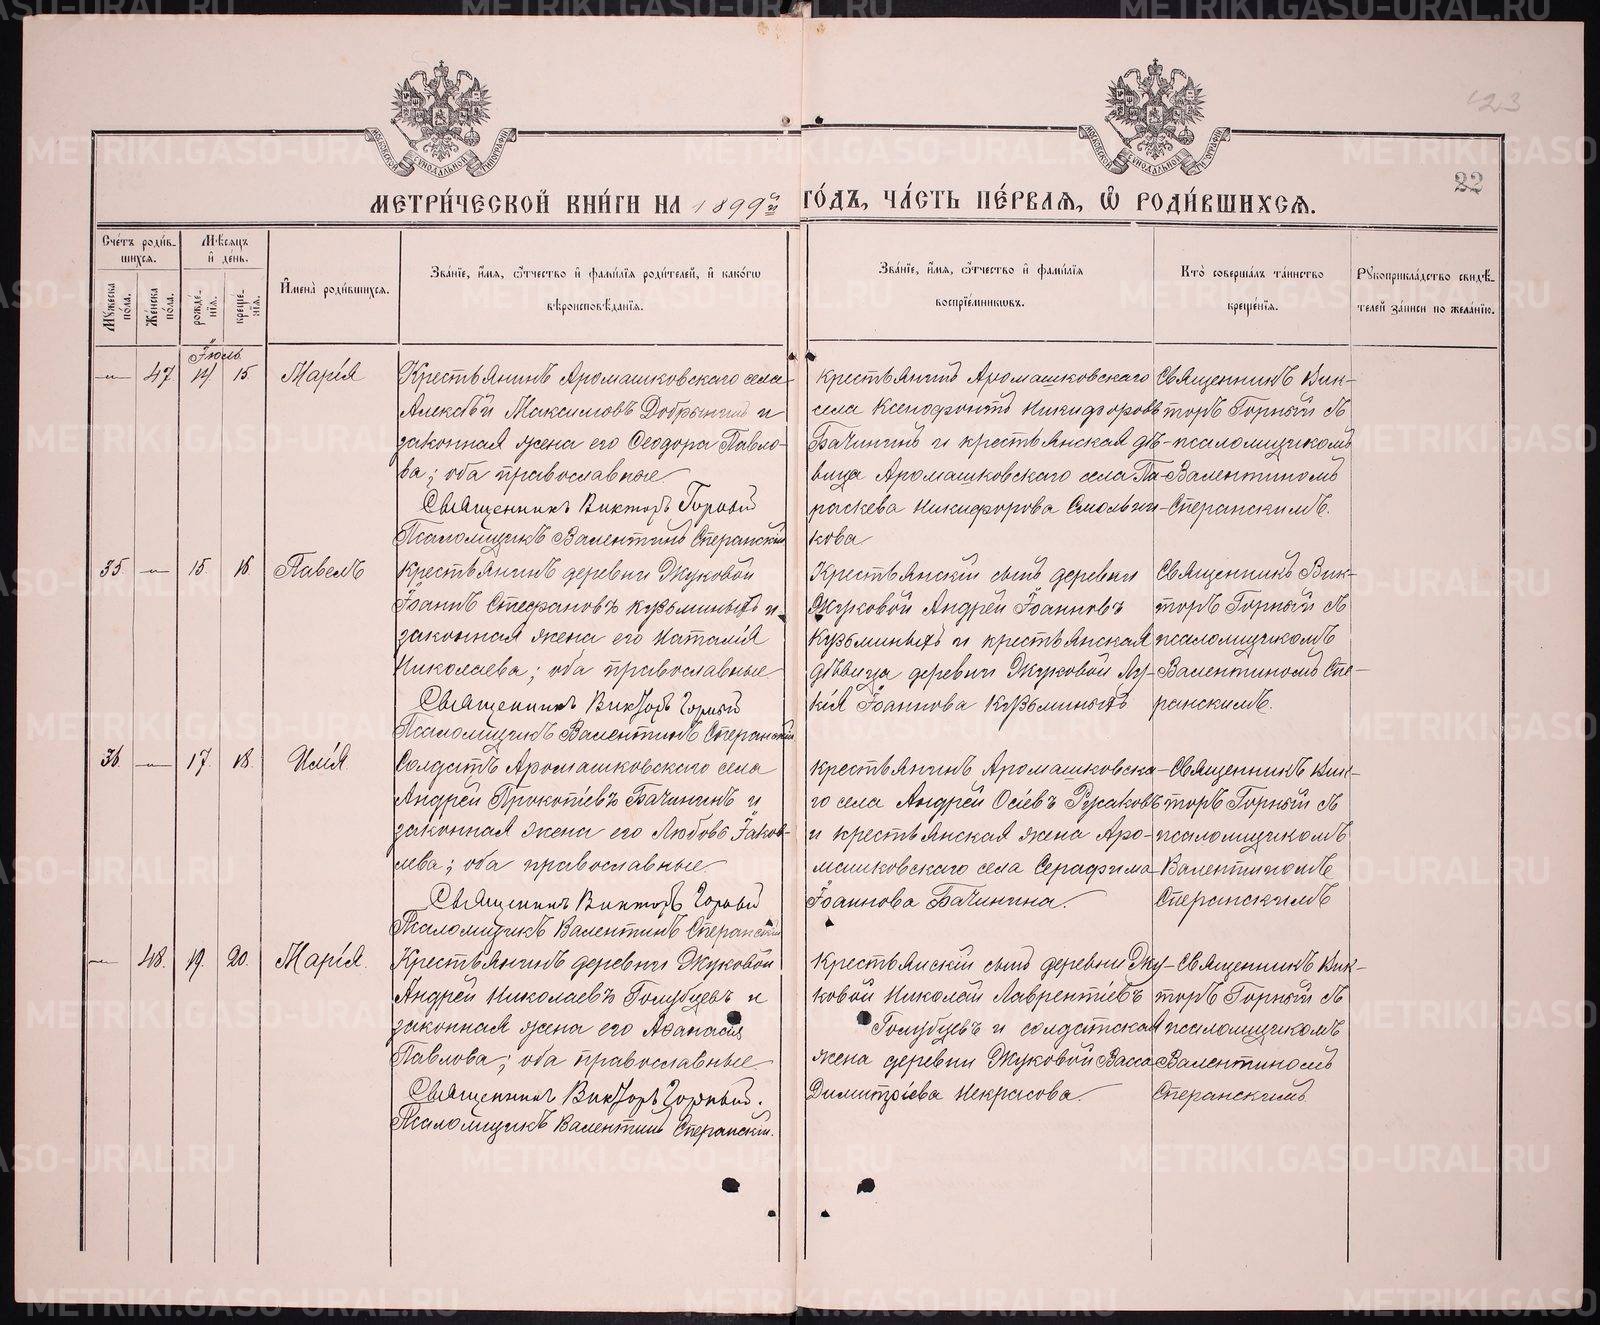 23
22
МОСКОВСКОЙ СУНОДАЛЬНОЙ ТИПОГРАФІИ
МОСКОВСКОЙ СУНОДАЛЬНОЙ ТИПОГРАФІИ
МЕТРИ́ЧЕСКОЙ КНИ́ГИ НА 1899й ГО́ДЪ, ЧА́СТЬ ПЕ́РВАѦ, Ѡ҆ РОДИ́ВШИХСѦ.
Сче́тъ роди́в-
шихсѧ.
Мꙋ́жеска по́ла.
Же́нска по́ла.
Мѣ́сѧцъ
и҆ де́нь.
рожде́-
нїѧ.
креще́-
нїѧ.
И҆мена̀ роди́вшихсѧ.
Зва́нїе, и҆́мѧ, ѻ҆́тчество и҆ фами́лїѧ роди́телей, и҆ како́гѡ
вѣроисповѣ́данїѧ.
Зва́нїе, и҆́мѧ, ѻ҆́тчество и҆ фами́лїѧ
воспрїе́мникѡвъ.
Кто̀ соверша́лъ та́инство
креще́нїѧ.
Рꙋкоприкла́дство свидѣ́-
телей за́писи по жела́нїю.
Іюль
—„— 47 14 15. Марія
Крестьянинъ Аромашковскаго села
Алексѣй Максимовъ Добрынинъ и
законная жена его Ѳеодора Павло-
ва; оба православные
Священникъ Викторъ Горный
Псаломщикъ Валентинъ Сперанскій
крестьянинъ Аромашковскаго
села Ксенофонтъ Никифоровъ
Бачининъ и крестьянская дѣ-
вица Аромашковскаго села Па-
раскева Никифорова Смольни-
кова
Священникъ Вик-
торъ Горный съ
псаломщикомъ
Валентиномъ
Сперанскимъ.
35. —„— 15. 16. Павелъ
крестьянинъ деревни Жуковой
Іоаннъ Стефановъ Кузьминыхъ и
законная жена его Наталія
Николаева; оба православные
Священникъ Викторъ Горный
Псаломщикъ Валентинъ Сперанскій
Крестьянскій сынъ деревни
Жуковой Андрей Іоанновъ
Кузьминыхъ и крестьянская
дѣвица деревни Жуковой Лу-
кія Іоаннова Кузьминыхъ
Священникъ Вик-
торъ Горный съ
псаломщикомъ
Валентиномъ Спе-
ранскимъ.
36. —„— 17. 18. Илія
Солдатъ Аромашковскаго села
Андрей Прокопіевъ Бачининъ и
законная жена его Любовь Іаков-
лева; оба православные
Священникъ Викторъ Горный
Псаломщикъ Валентинъ Сперанскій
крестьянинъ Аромашковска-
го села Андрей Осіевъ Русаковъ
и крестьянская жена Аро-
машковскаго села Серафима
Іоаннова Бачинина.
Священникъ Вик-
торъ Горный съ
псаломщикомъ
Валентиномъ
Сперанскимъ
—„— 48. 19. 20. Марія.
Крестьянинъ деревни Жуковой
Андрей Николаевъ Голубцевъ и
законная жена его Аѳанасія
Павлова; оба православные
Священникъ Викторъ Горный.
Псаломщикъ Валентинъ Сперанскій.
крестьянскій сынъ деревни Жу-
ковой Николай Лаврентіевъ
Голубцевъ и солдатская
жена деревни Жуковой Васса
Димитріева Некрасова.
Священникъ Вик-
торъ Горный съ
псаломщикомъ
Валентиномъ
Сперанскимъ